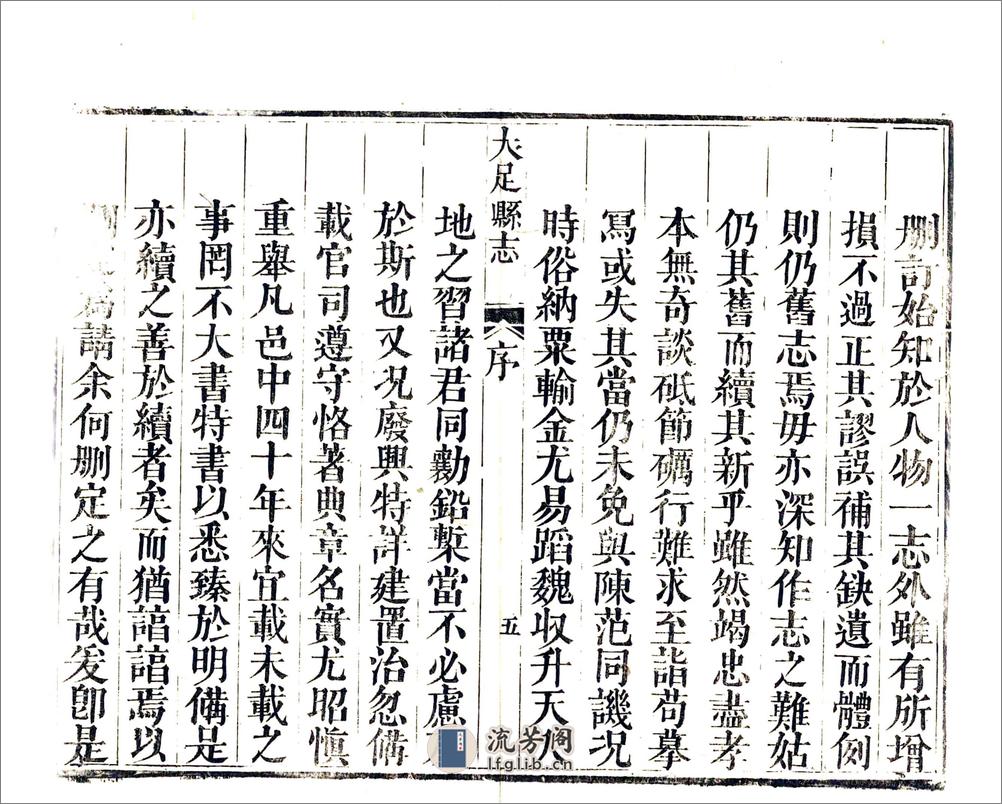 刪訂始知於人物一志外雖有所增
損不過正其謬誤補其缺遺而體例
則仍舊志焉毋亦深知作志之難姑
仍其舊而續其新乎雖然竭忠盡孝
本無奇談砥節礪行難求至詣苟摹
寫或失其當仍未免與陳范同譏况
時俗納粟輸金尤易蹈魏収升天入
大足縣志
序
五
地之習諸君同勷鉛槧當不必慮
於斯也又况廢興特詳建置治忽備
載官司遵守恪著典章名實尤昭慎
重舉凡邑中四十年來宜載未載之
事罔不大書特書以悉臻於明備是
亦續之善於續者矣而猶諄諄焉以
請余何刪定之有哉爰卽是
流芳阁
lfglib.cn